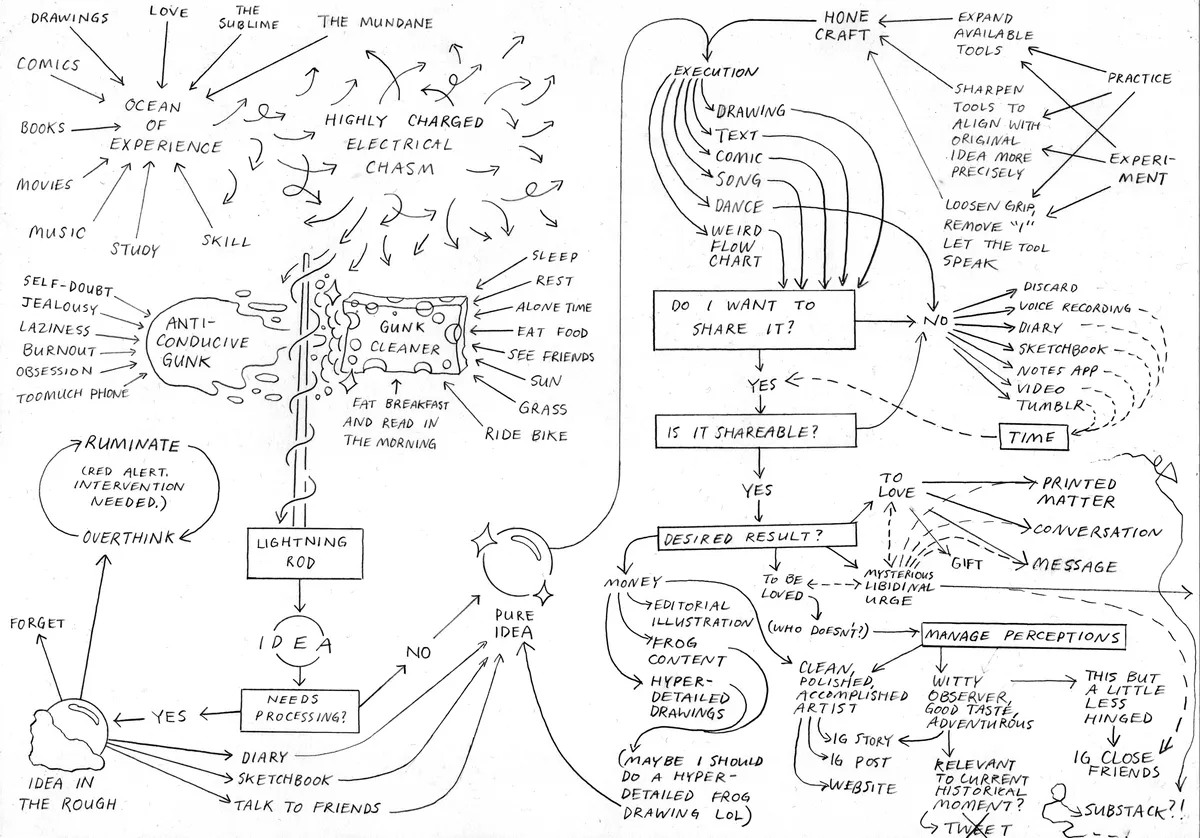 DRAWINGS
LOVE
THE
SUBLIME
THE MUNDANE
COMICS
BOOKS
MOVIES
MUSIC
STUDY
SKILL
OCEAN
OF
EXPERIENCE
HIGHLY CHARGED
ELECTRICAL
CHASM
SELF-DOUBT
JEALOUSY
LAZINESS
BURNOUT
OBSESSION
TOO MUCH PHONE
ANTI-
CONDUCIVE
GUNK
GUNK
CLEANER
SLEEP
REST
ALONE TIME
EAT FOOD
SEE FRIENDS
SUN
GRASS
RIDE BIKE
EAT BREAKFAST
AND READ IN
THE MORNING
RUMINATE
(RED ALERT.
INTERVENTION
NEEDED.)
OVERTHINK
LIGHTNING
ROD
IDEA
NEEDS
PROCESSING?
NO
YES
FORGET
IDEA IN
THE ROUGH
DIARY
SKETCHBOOK
TALK TO FRIENDS
PURE
IDEA
HONE
CRAFT
EXPAND
AVAILABLE
TOOLS
PRACTICE
SHARPEN
TOOLS TO
ALIGN WITH
ORIGINAL
IDEA MORE
PRECISELY
EXPERI-
MENT
LOOSEN GRIP,
REMOVE "I"
LET THE TOOL
SPEAK
EXECUTION
DRAWING
TEXT
COMIC
SONG
DANCE
WEIRD
FLOW
CHART
DO I WANT TO
SHARE IT?
NO
DISCARD
VOICE RECORDING
DIARY
SKETCHBOOK
NOTES APP
VIDEO
TUMBLR
TIME
YES
IS IT SHAREABLE?
YES
DESIRED RESULT?
TO
LOVE
PRINTED
MATTER
CONVERSATION
MESSAGE
GIFT
MYSTERIOUS
LIBIDINAL
URGE
TO BE
LOVED
(WHO DOESN'T?)
MANAGE PERCEPTIONS
MONEY
EDITORIAL
ILLUSTRATION
FROG
CONTENT
HYPER-
DETAILED
DRAWINGS
(MAYBE I SHOULD
DO A HYPER-
DETAILED FROG
DRAWING LOL)
CLEAN,
POLISHED,
ACCOMPLISHED
ARTIST
IG STORY
IG POST
WEBSITE
WITTY
OBSERVER,
GOOD TASTE,
ADVENTUROUS
RELEVANT
TO CURRENT
HISTORICAL
MOMENT?
TWEET
THIS BUT
A LITTLE
LESS
HINGED
IG CLOSE
FRIENDS
SUBSTACK?!